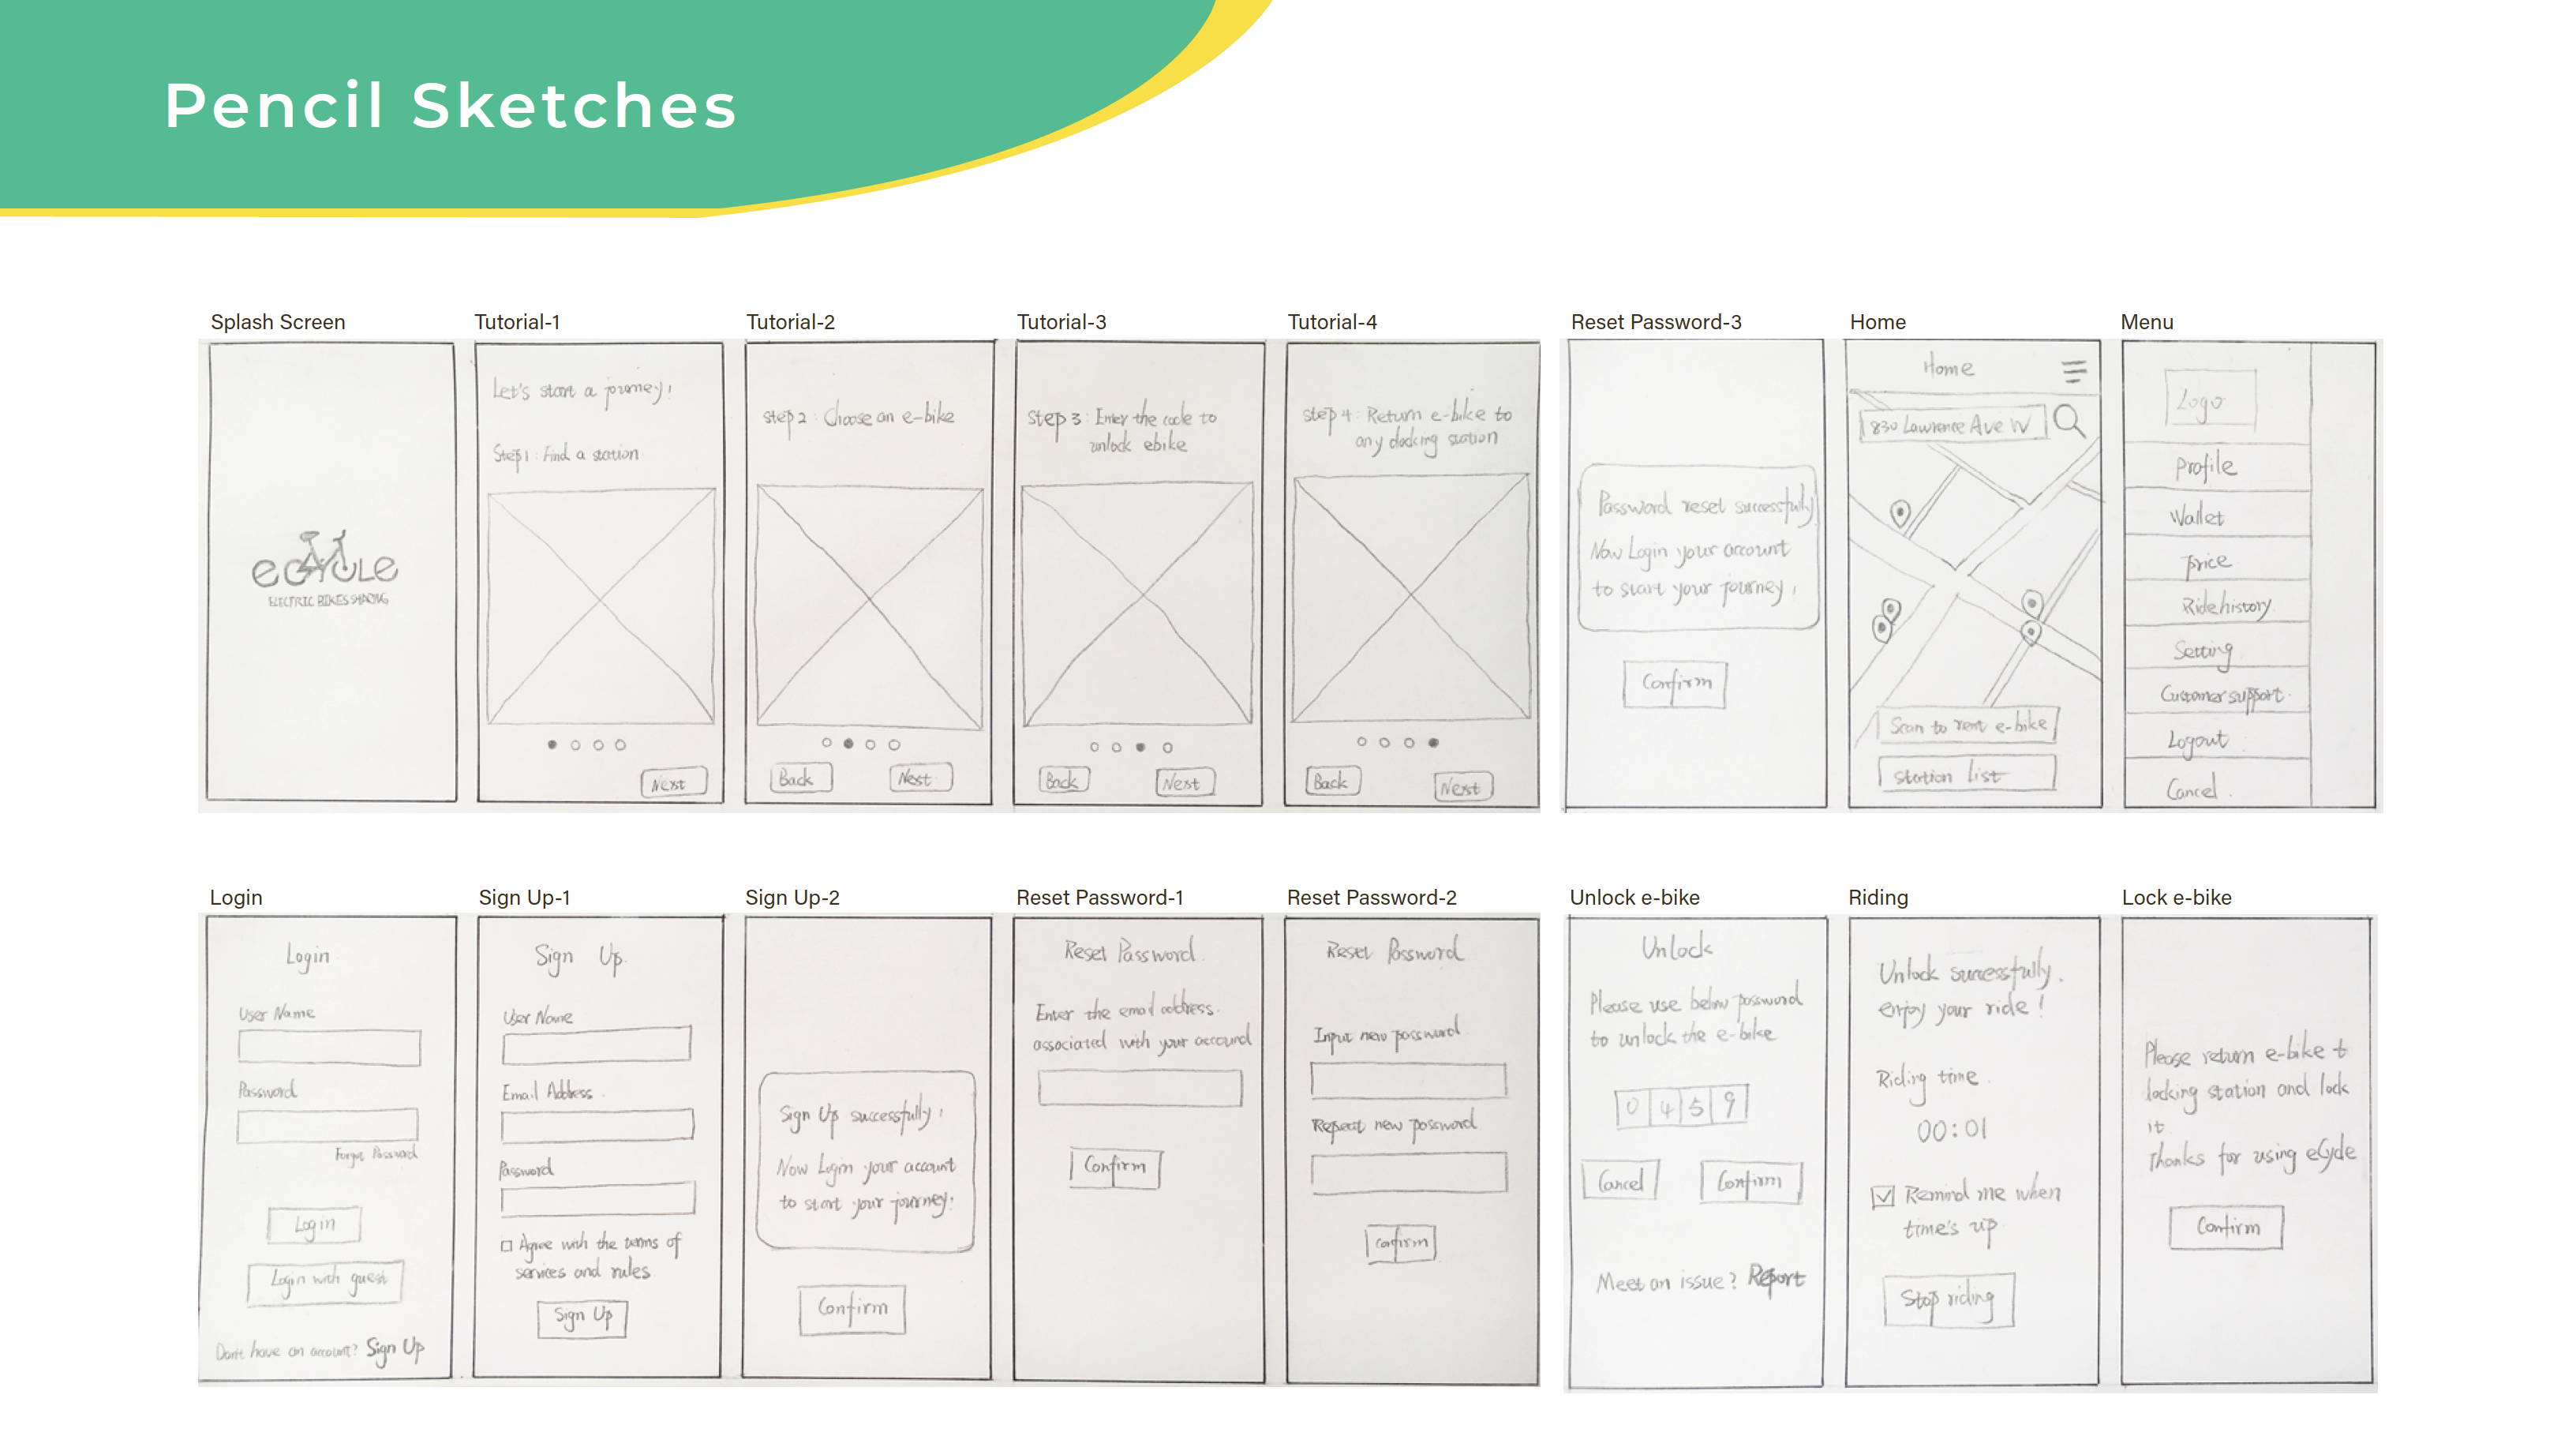 Pencil Sketches
Splash Screen
eCYCLE
ELECTRIC BIKES SHARING
Tutorial-1
Let's start a journey!
Step1: Find a station
Next
Tutorial-2
step2: Choose an e-bike
Back
Next
Tutorial-3
Step3: Enter the code to
unlock ebike
Back
Next
Tutorial-4
step4: Return e-bike to
any docking station
Back
Next
Reset Password-3
Password reset successfully
Now Login your account
to start your journey!
Confirm
Home
Home
830 Lawrence Ave W
Scan to rent e-bike
Station list
Menu
Logo
Profile
Wallet
Price
Ride history
Setting
Customer support
Logout
Cancel
Login
Login
User Name
Password
Forgot Password
Login
Login with guest
Don't have an account? Sign Up
Sign Up-1
Sign Up
User Name
Email Address
Password
Agree with the terms of
services and rules
Sign Up
Sign Up-2
Sign Up successfully!
Now Login your account
to start your journey!
Confirm
Reset Password-1
Reset Password
Enter the email address
associated with your account
Confirm
Reset Password-2
Reset Password
Input new password
Repeat new password
Confirm
Unlock e-bike
Unlock
Please use below password
to unlock the e-bike
0 4 5 9
Cancel
Confirm
Meet an issue? Report
Riding
Unlock successfully.
enjoy your ride!
Riding time
00:01
Remind me when
time's up
Stop riding
Lock e-bike
Please return e-bike t
locking station and lock
it.
Thanks for using eCycle
Confirm